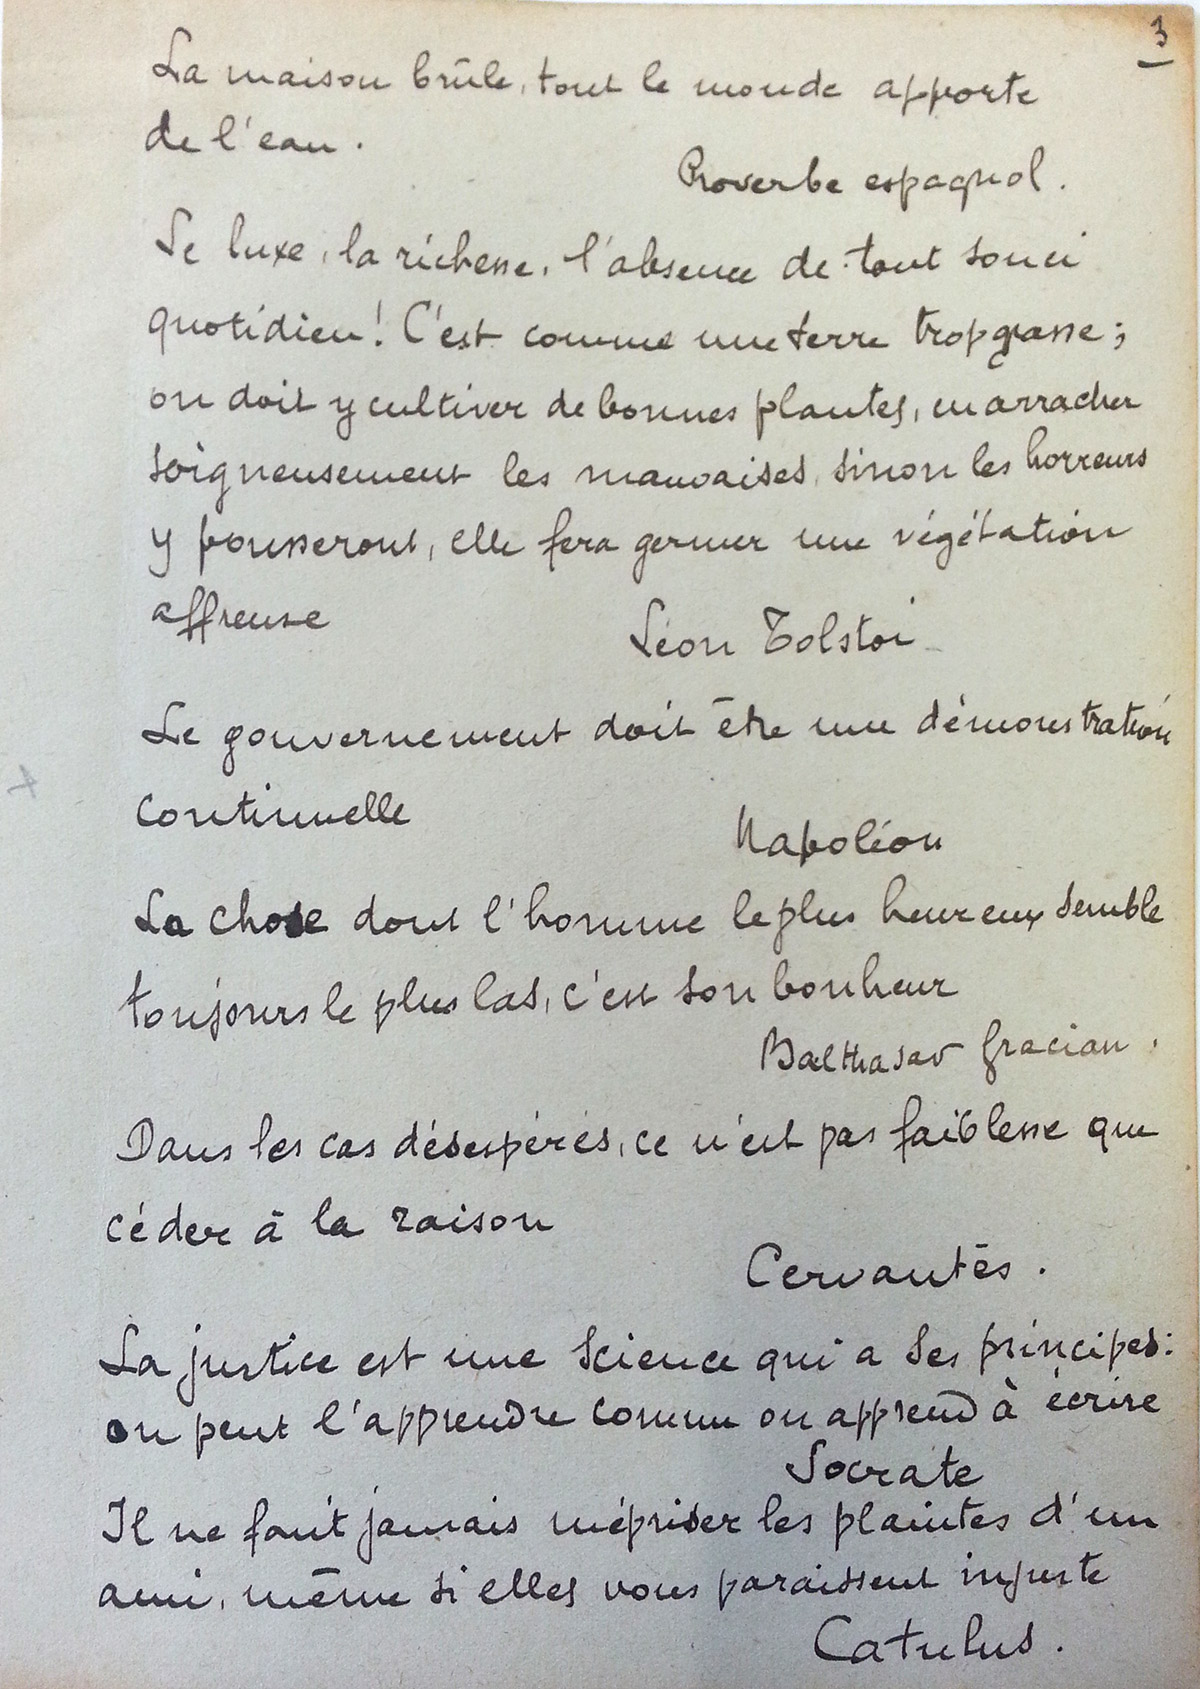 3
La maison brûle, tout le monde apporte
de l'eau.
Proverbe espagnol.
Le luxe, la richesse, l'absence de tout souci
quotidien! C'est comme une terre trop grasse;
on doit y cultiver de bonnes plantes, en arracher
soigneusement les mauvaises, sinon les horreurs
y pousseront, elle fera germer une végétation
affreuse
Léon Tolstoi
Le gouvernement doit être une démonstration
continuelle
Napoléon
La chose dont l'homme le plus heureux semble
toujours le plus las, c'est son bonheur
Balthasar Gracian.
Dans les cas désespérés, ce n'est pas faiblesse que
céder à la raison
Cervantès.
La justice est une science qui a ses principes:
on peut l'apprendre comme on apprend à écrire
Socrate
Il ne faut jamais mépriser les plaintes d'un
ami, même si elles vous paraissent injuste
Catulus.